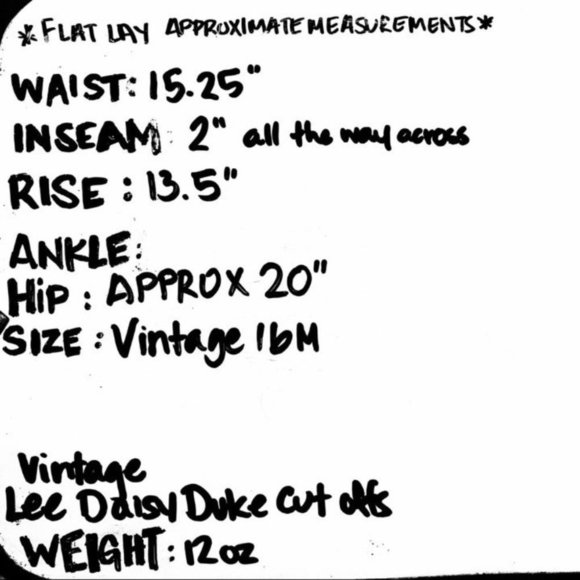 *FLAT LAY APPROXIMATE MEASUREMENTS*
WAIST: 15.25"
INSEAM: 2" all the way across
RISE: 13.5"
ANKLE:
HiP: APPROX 20"
SIZE: Vintage 16M
Vintage
Lee Daisy Duke Cut offs
WEIGHT: 12oz